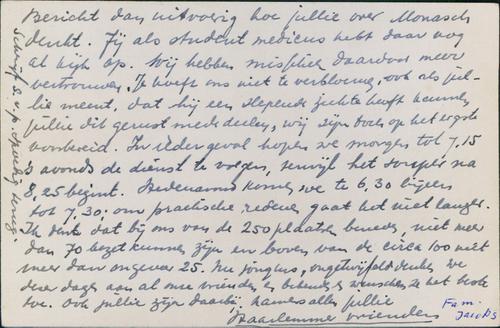 Bericht dan uitvoerig hoe jullie over Monasch
denkt. Jij als student medicus hebt daar nog
al kijk op. Wij hebben misschien daardoor meer
vertrouwen. Je hoeft ons niet te verbloemen, ook als jul-
lie meent, dat hij een slepende ziekte heeft kunnen
jullie dit gerust mededeelen, wij zijn toch op het ergste
voorbereid. In ieder geval hopen we morgen tot 7,15
's avonds de dienst te volgen, terwijl het souper na
8,25 begint. komen we te 6,30 bijeen
tot 7,30; om practische redenen gaat het niet langer.
Ik denk dat bij ons van de 250 plaatsen beneden, niet meer
dan 70 bezet kunnen zijn en boven van de circa 100 niet
meer dan ongeveer 25. Nu jongens, ongetwijfeld denken we
deze dagen aan al onze vrienden en bekenden en wenschen ze het beste
toe. Ook jullie zijn daarbij, namens alle jullie
Haarlemmer vrienden
Fam.
Jacobs
Schrijf s.v.p. spoedig terug.